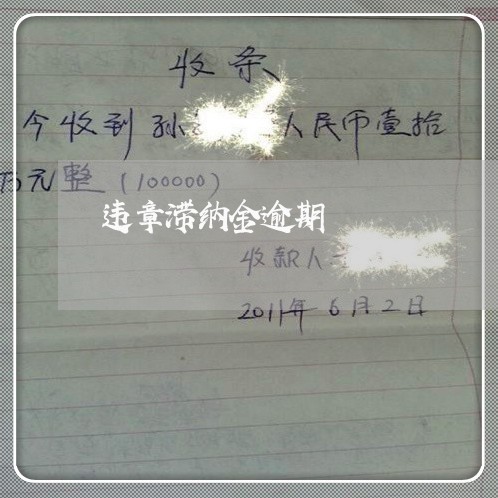 收条
今收到孙 人民币壹拾
万元整(100000)
违章滞纳金逾期
收款人
2011年6月2日